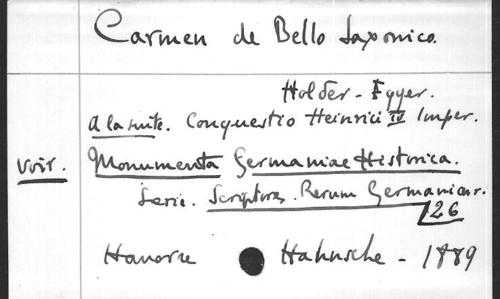 Carmen de Bello Saxonico.
Holder-Egger.
A la suite. Conquestio Heinrici IV Imper.
Voir. Monumenta Germaniae Historica.
Serie. Scriptores. Rerum Germanicar.
126
Hanovre Hahnsche - 1889